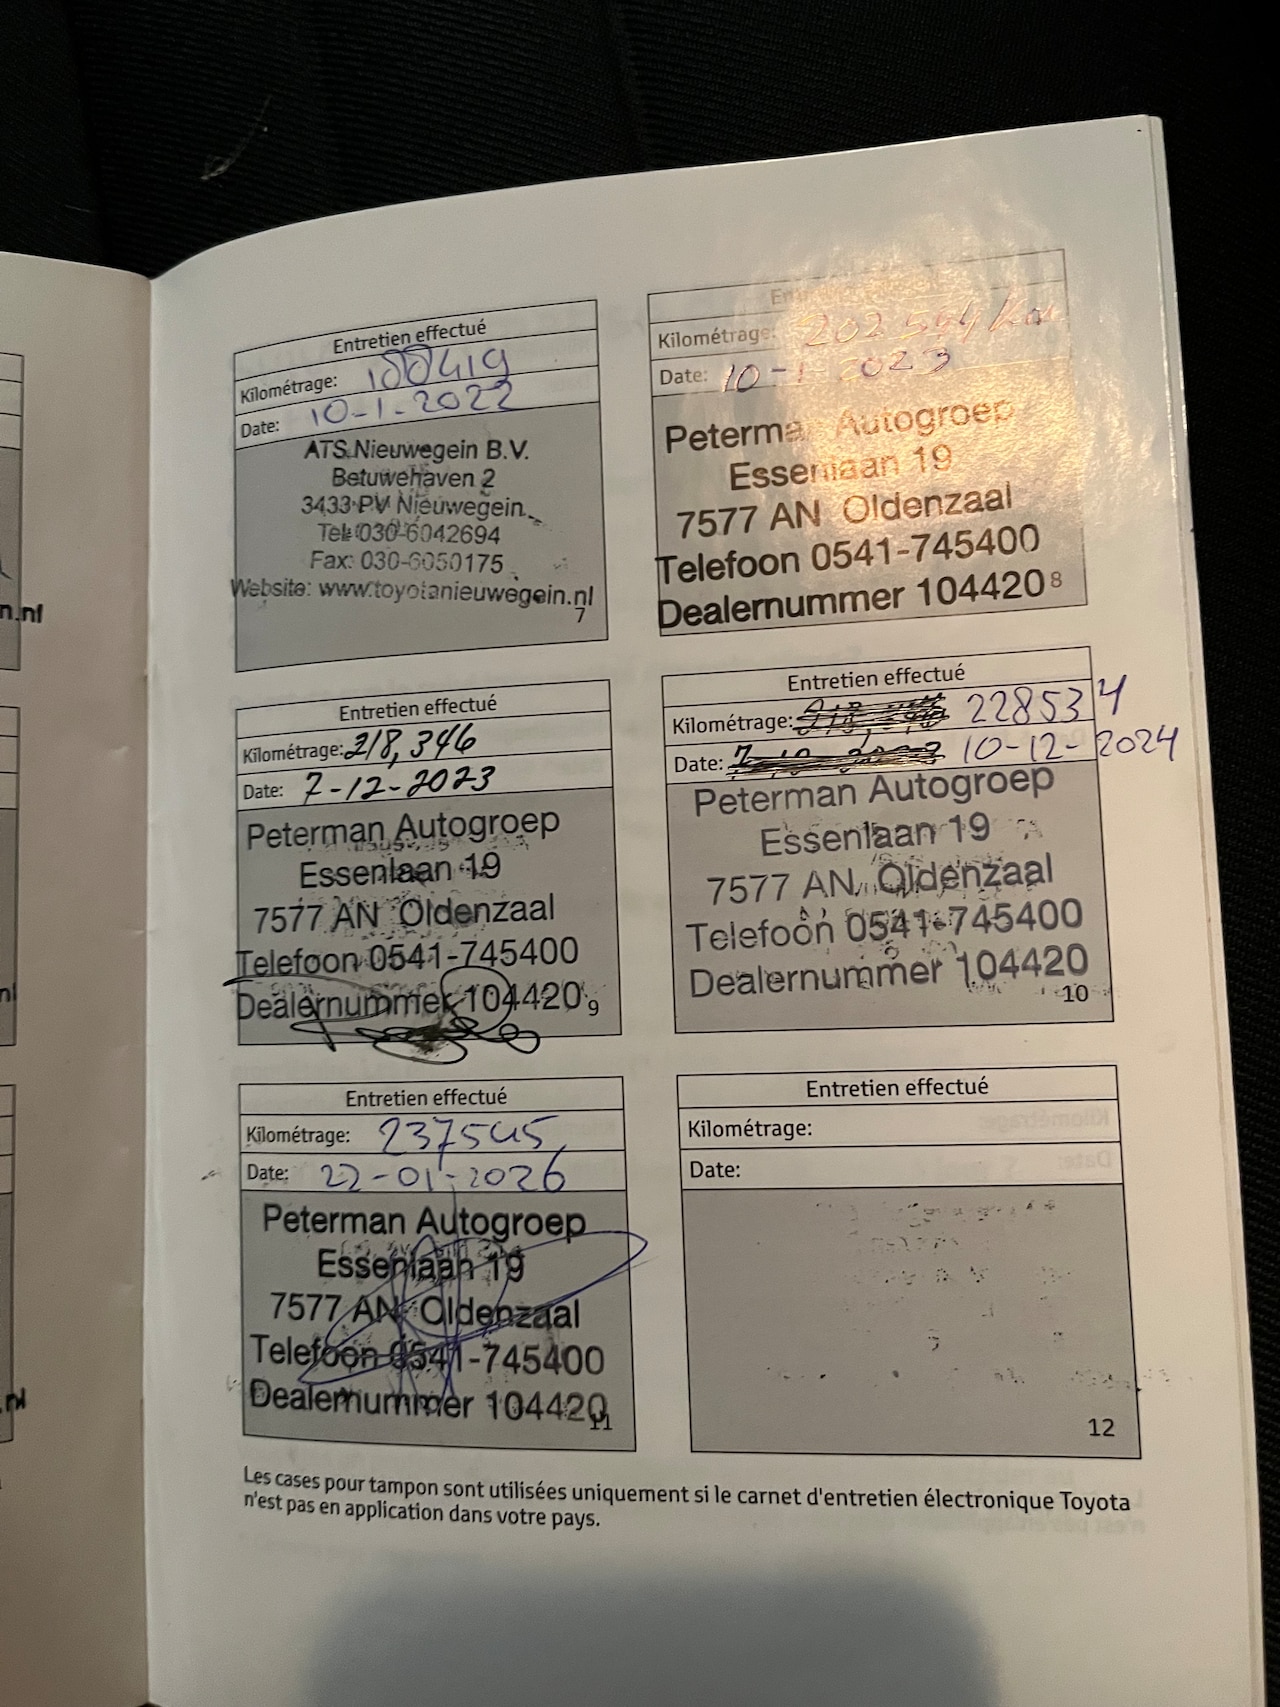 n.nl
nl
.nl
Entretien effectué
Kilométrage: 188419
Date: 10-1-2022
ATS Nieuwegein B.V.
Betuwehaven 2
3433 PV Nieuwegein
Tel: 030-6042694
Fax: 030-6050175
Website: www.toyotanieuwegein.nl
7
Kilométrage: 202 564 km
Date: 10-1-2023
Peterman Autogroep
Essenlaan 19
7577 AN Oldenzaal
Telefoon 0541-745400
Dealernummer 104420
8
Entretien effectué
Kilométrage: 218,346
Date: 7-12-2023
Peterman Autogroep
Essenlaan 19
7577 AN Oldenzaal
Telefoon 0541-745400
Dealernummer 104420
9
Entretien effectué
Kilométrage: 228534
Date: 10-12-2024
Peterman Autogroep
Essenlaan 19
7577 AN Oldenzaal
Telefoon 0541-745400
Dealernummer 104420
10
Entretien effectué
Kilométrage: 237545
Date: 22-01-2026
Peterman Autogroep
Essenlaan 19
7577 AN Oldenzaal
Telefoon 0541-745400
Dealernummer 104420
11
Entretien effectué
Kilométrage:
Date:
12
Les cases pour tampon sont utilisées uniquement si le carnet d'entretien électronique Toyota
n'est pas en application dans votre pays.